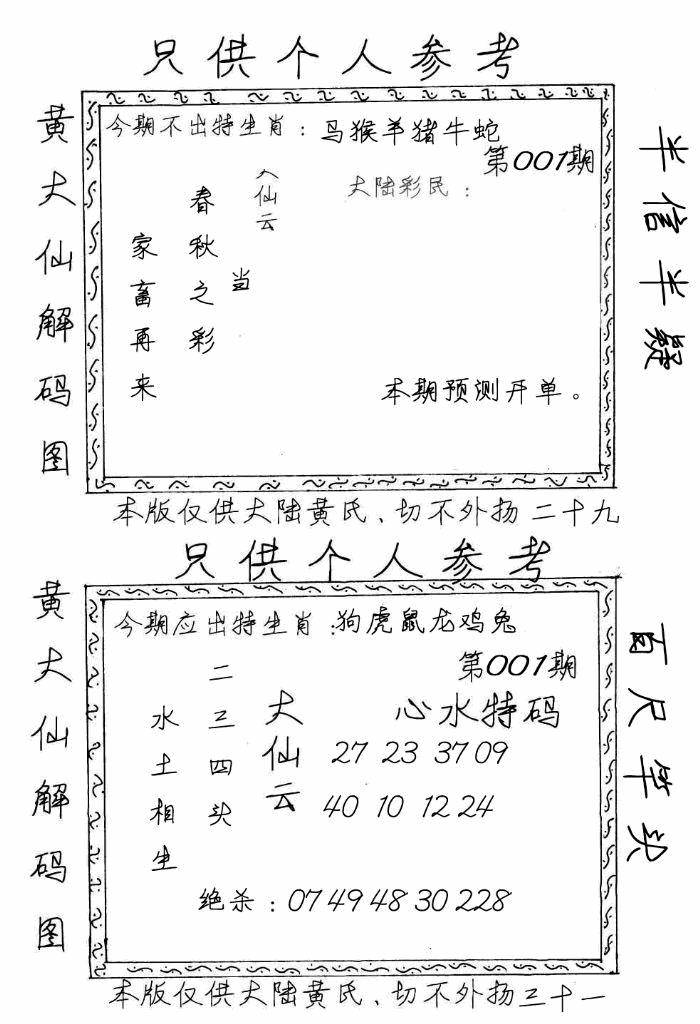 只供个人参考
黄大仙解码图
今期不出特生肖：马猴羊猪牛蛇
第001期
大仙云
大陆彩民：
春秋之彩
当
家畜再来
本期预测开单。
半信半疑
本版仅供大陆黄氏、切不外扬二十九
只供个人参考
黄大仙解码图
今期应出特生肖：狗虎鼠龙鸡兔
第001期
大仙云
二三四头
水土相生
心水特码
27 23 37 09
40 10 12 24
绝杀：07 49 48 30 228
百尺竿头
本版仅供大陆黄氏、切不外扬三十一